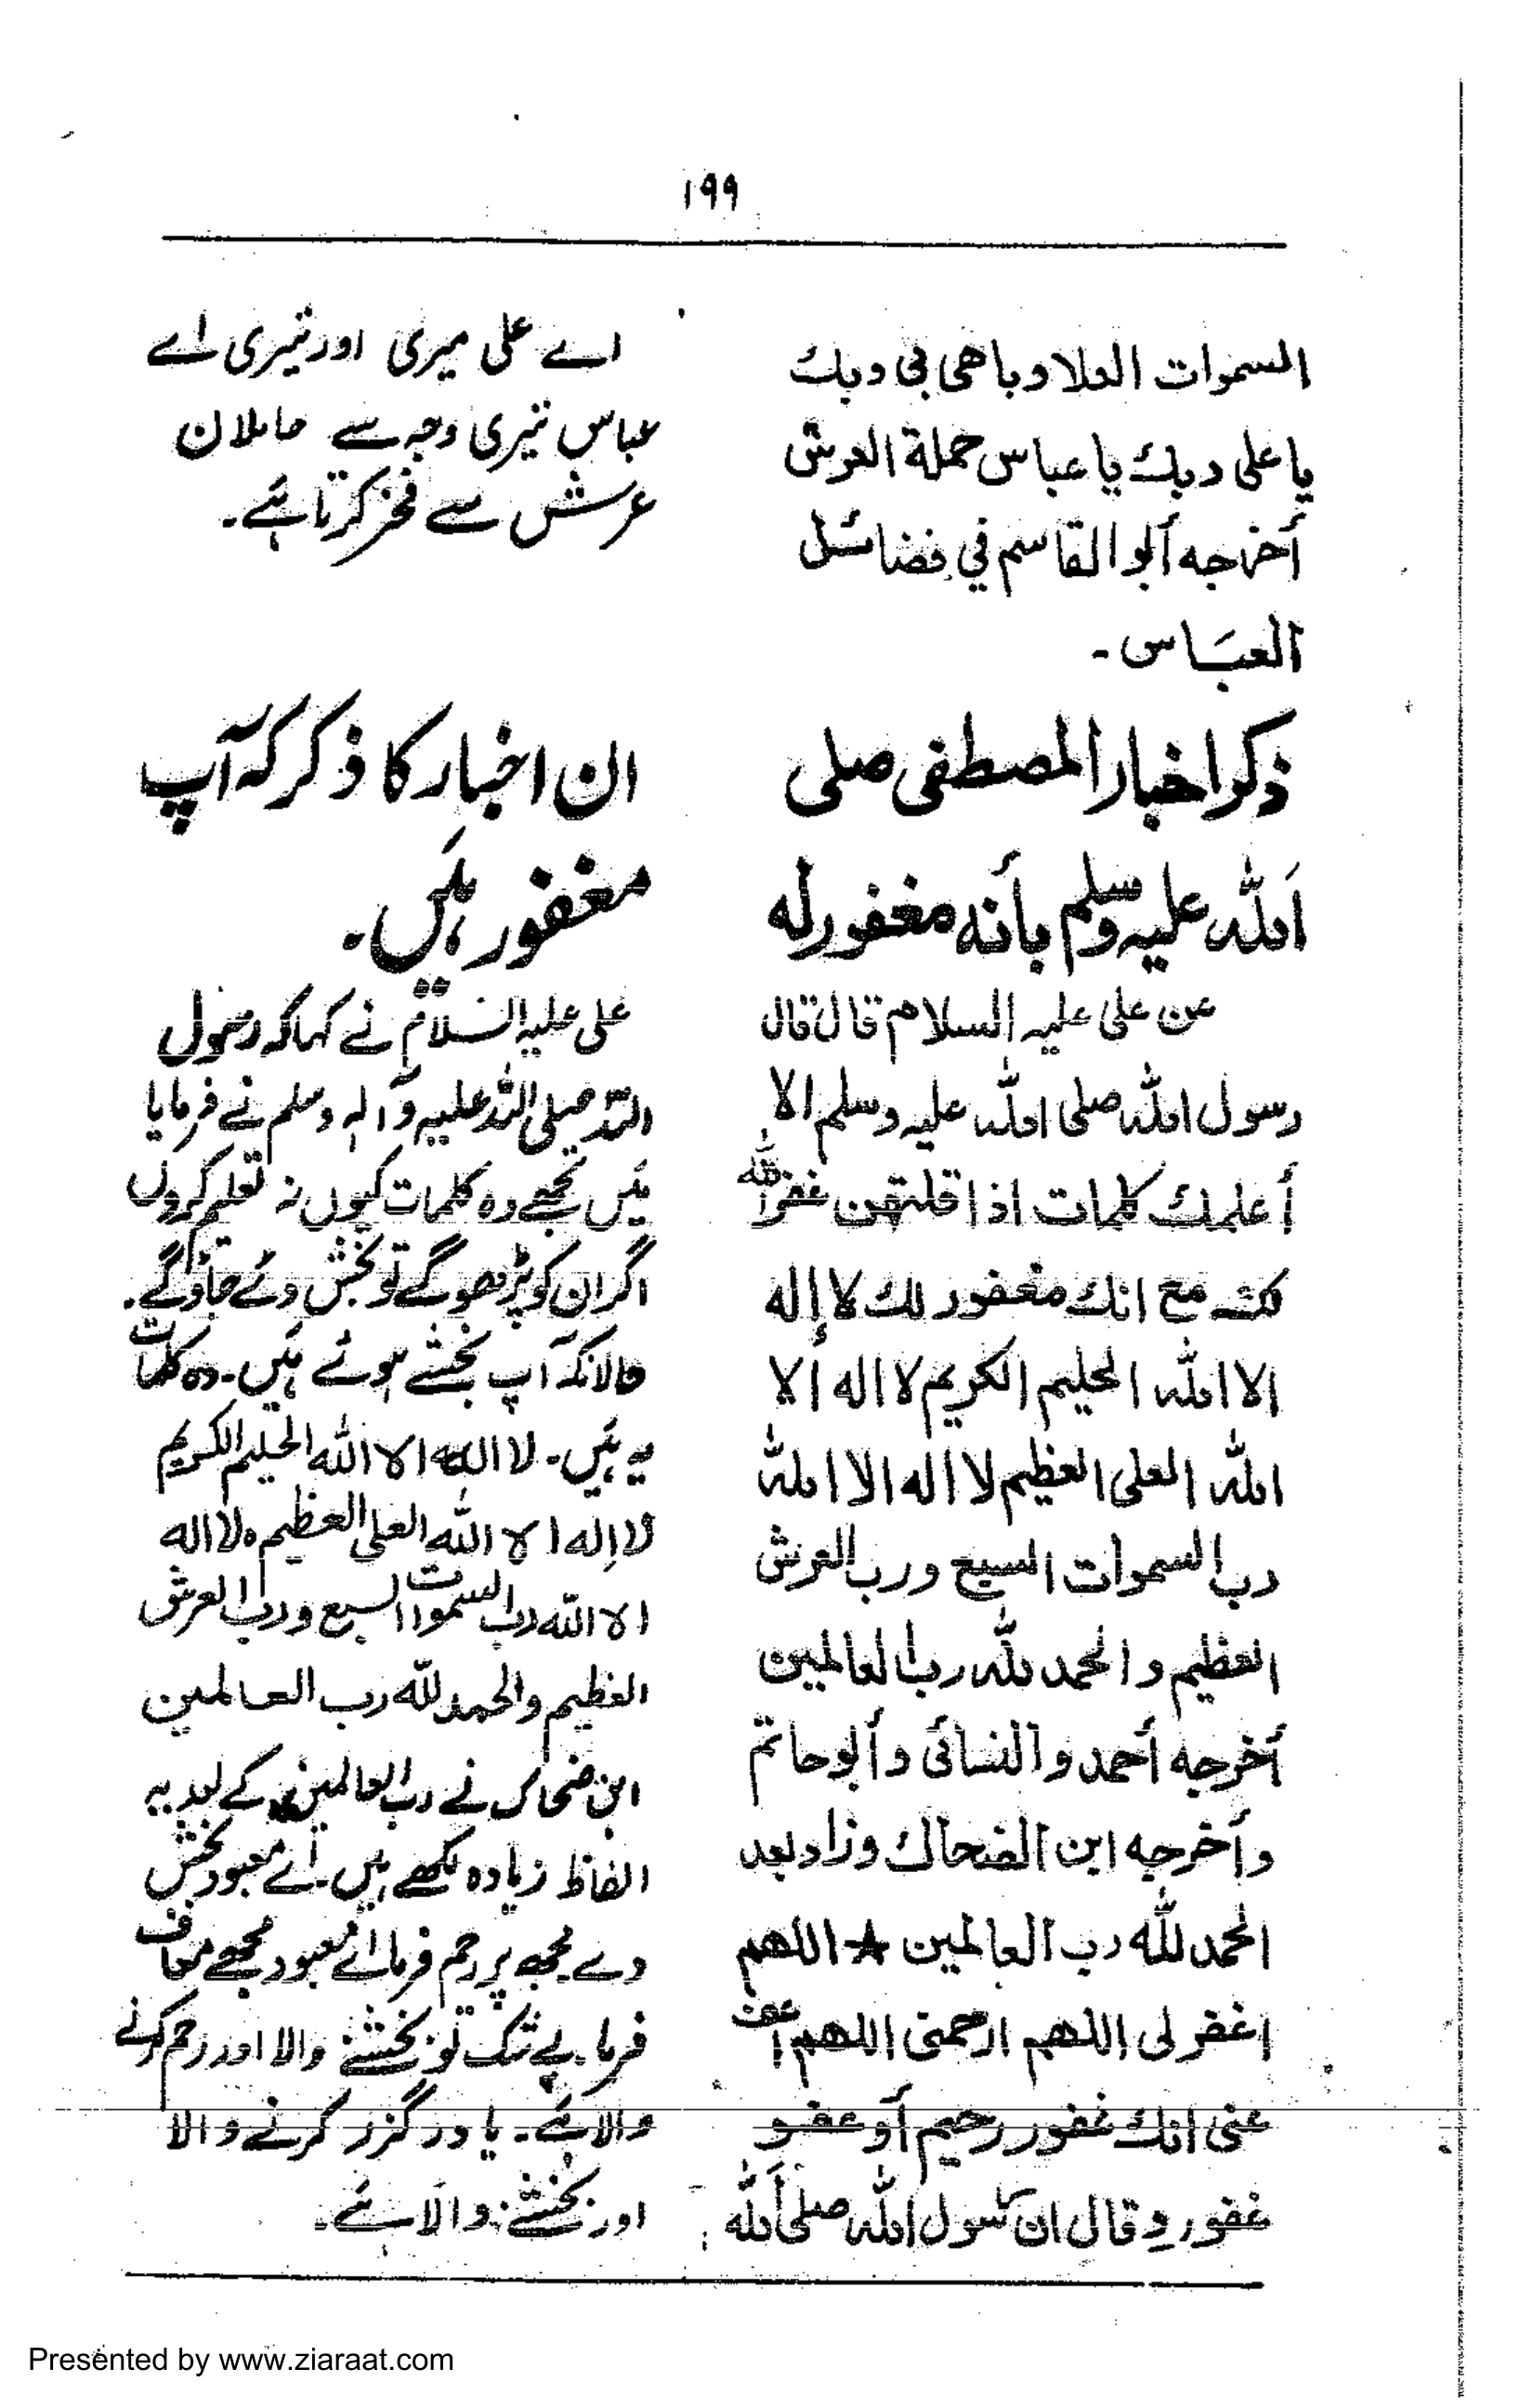 ۱۹۹
السموات العلا وباهى بی وبك
يا على وبك يا عباس حملة العرش
أخرجه ألبو القاسم في فضائل
العبَاس -
ذکر اخبار المصطفی صلی
الله علیه وسلم بأنه مغفور له
عن على عليه السلام قال قال
رسول الله صلى الله عليه وسلم الا
أعلمك كلمات اذا قلتهن غفر الله
لك مع انك مغفور لك لا إله
الا الله الحليم الكريم لا اله ألا
الله العلى العظيم لا اله الا الله
رب السموات السبع ورب العرش
العظيم والحمد لله رب العالمين
أخرجه أحمد والنسائى وألبوحاتم
وأخرجه ابن الضحاك وزاد بعد
الحمد لله رب العالمين ★ اللهم
اغفر لى اللهم ارحمنى اللهم اعف
عنى انك غفور رحيم أو عفو
غفور وقال ان رسول الله صلى الله
اے علی میری اور تیری اے
عباس تیری وجہ سے حاملان
عرش سے فخر کرتا ہئے۔
ان اخبار کا ذکر کہ آپ
مغفور ہئیں۔
علی علیہ السّلام نے کہا کہ رسول
اللّٰہ صلی اللّٰہ علیہ وآلہ وسلم نے فرمایا
مَیں تجھے وہ کلمات کیوں نہ تعلیم کروں
اگر ان کو پڑھو گے تو بخش دئے جاؤ گے۔
حالانکہ آپ بخشے ہوئے ہَیں۔ وہ کلمات
یہ ہَیں۔ لا اله الا الله الحليم الكريم
لا إله الا الله العلى العظيم ہ لا اله
الا الله رب السموات السبع ورب العرش
العظيم والحمد لله رب العالمين
ابن ضحاک نے رب العالمین کے بعد یہ
الفاظ زیادہ لکھے ہیں۔ اے معبود بخش
دے مجھ پر رحم فرما اے معبود مجھے معاف
فرما۔ بے شک تو بخشنے والا اور رحم کرنے
والا ہے۔ یا درگزر کرنے والا
اور بخشنے والا ہے۔
Presented by www.ziaraat.com